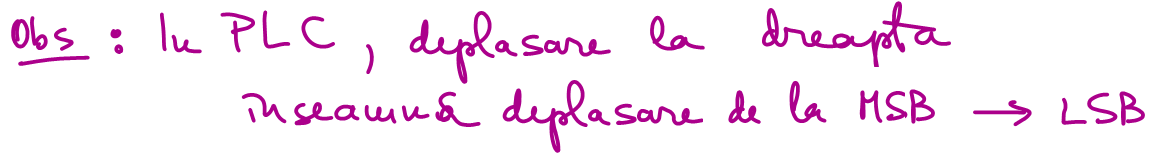 Obs : In PLC, deplasare la dreapta
înseamnă deplasare de la MSB → LSB